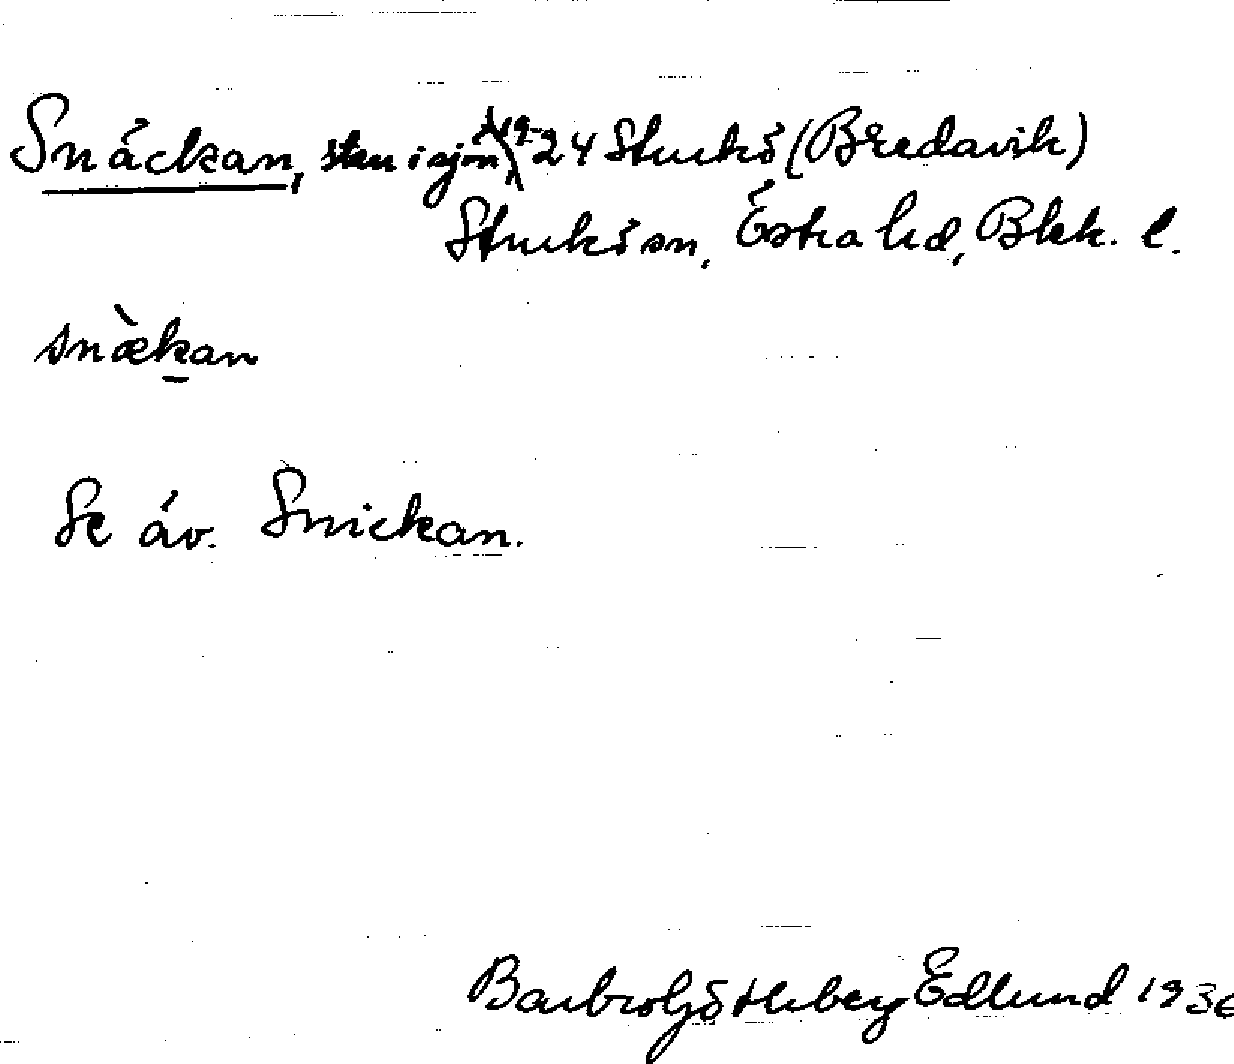 Snäckan, sten i sjön 24 Sturkö (Bredavik)
Sturkö sn, Östra hd, Blek. l.
snækan
Se äv. Snickan.
Barbro Götheberg Edlund 1936